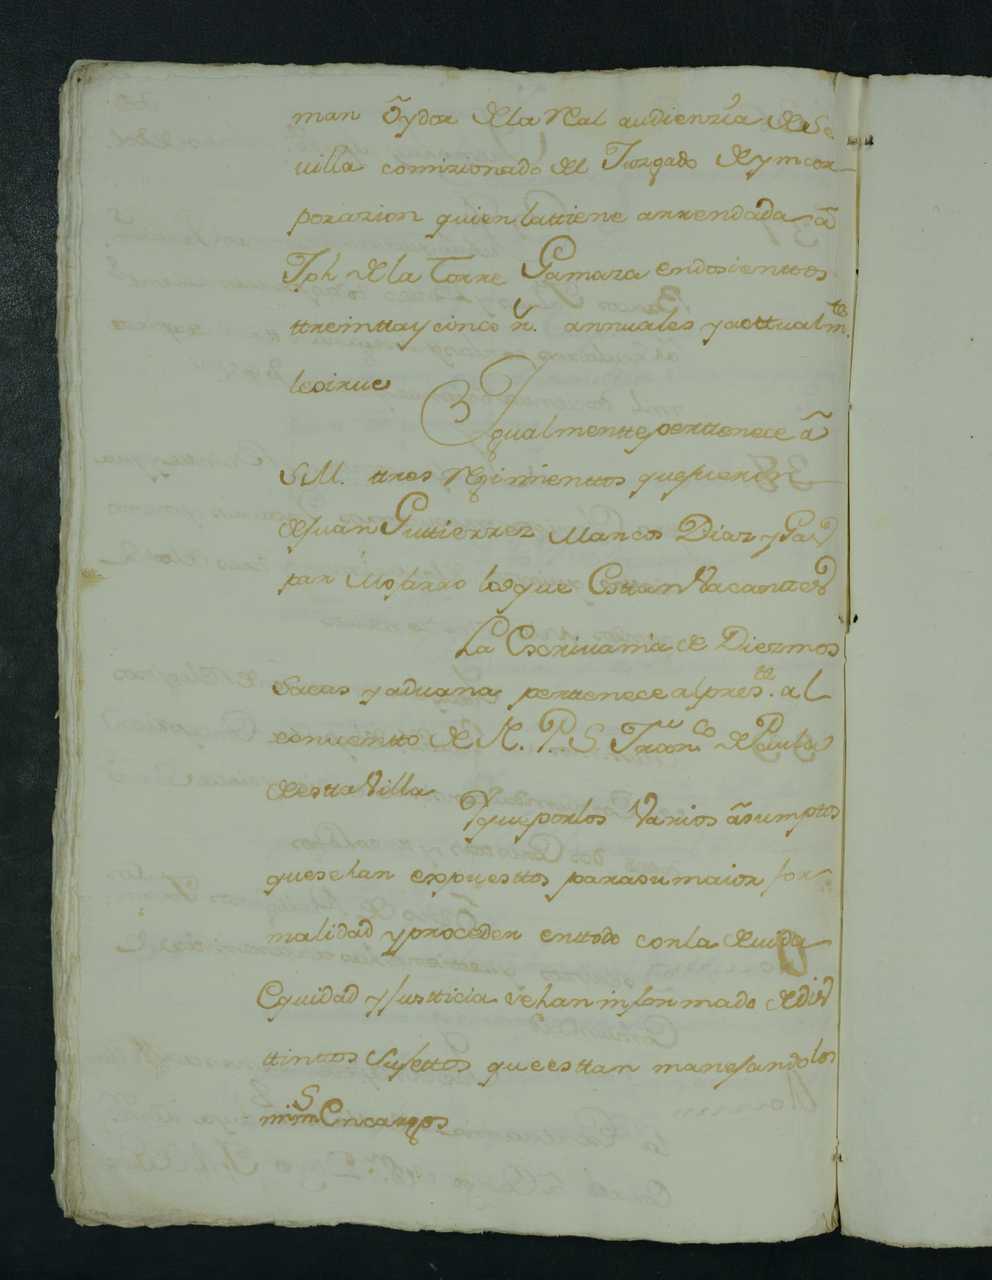 man Oydor de la Real audienzia de Se
uilla comisionado del Juzgado de yncor
porazion quien lattiene arrendada â
Jph. de la Torre Gamaza en dosienttos
ttreintta y cinco rs. annuales y acttualmte.
le sirue
Ygualmentte perttenece â
S.M. ttres Regimienttos que fueron
de Juan Guttierrez Marcos Diaz y Gas
par Mojarro los que Esttan Vacanttes
La Escriuania de Diezmos
Sacas y aduana, perttenece al preste. al
conuentto de N. P. S. Franco. de Paula
de estta Villa
Y que por los Varios asumptos
que se han expuesttos para su maior for
malidad y proceder en ttodo con la deuida
Equidad y Justticia se han informado de dis
ttinttos Sujettos que esttan manejando los
mismos Encargos